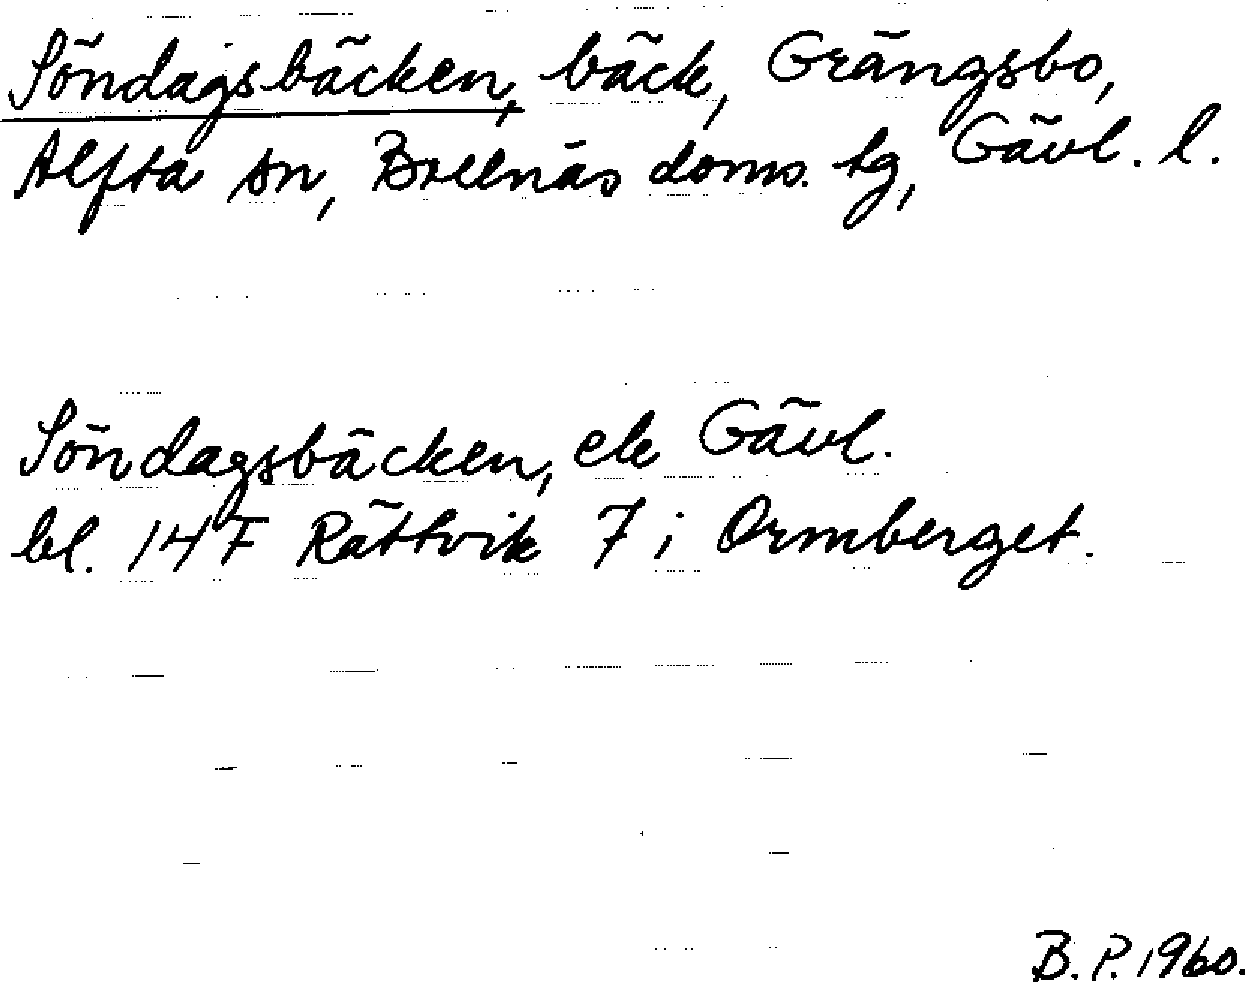 Söndagsbäcken, bäck, Grängsbo,
Alfta sn, Bollnäs doms. tg, Gävl. l.
Söndagsbäcken, ek Gävl.
bl. 14F Rättvik 7 i Ormberget.
B. P. 1960.